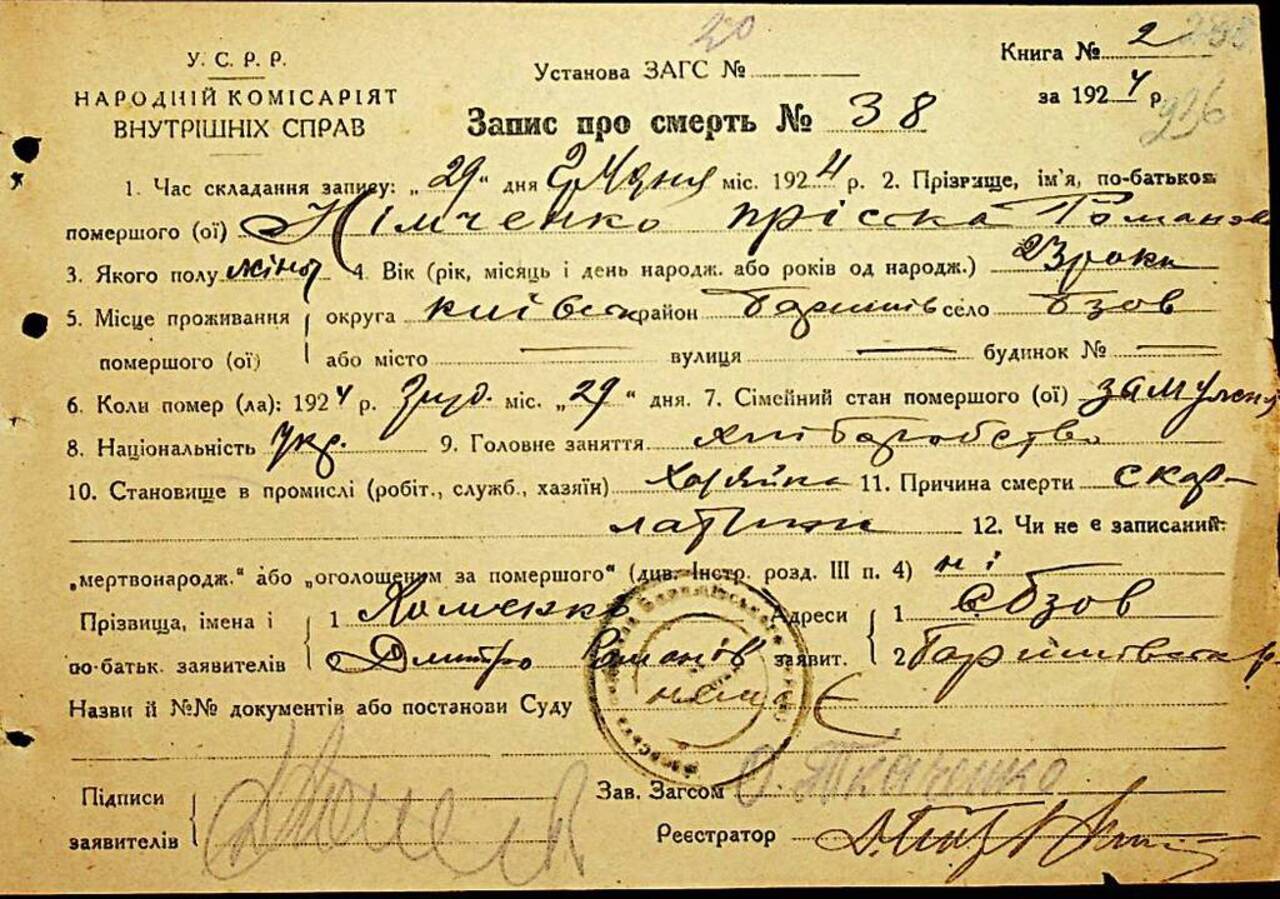 20
У. С. Р. Р.
НАРОДНІЙ КОМІСАРІЯТ
ВНУТРІШНІХ СПРАВ
Установа ЗАГС №
Книга № 2
за 1924 р.
Запис про смерть № 38
1. Час складання запису: „29" дня Грудня міс. 1924 р. 2. Прізвище, ім'я, по-батькові
помершого (ої) Німченко Пріська Романов
3. Якого полу жіноч 4. Вік (рік, місяць і день народж. або років од народж.) 23 роки
5. Місце проживання округа Київськ район Баришів село Бзов
помершого (ої) або місто — вулиця — будинок № —
6. Коли помер (ла): 1924 р. Груд. міс. „29" дня. 7. Сімейний стан помершого (ої) замужня
8. Національність Укр. 9. Головне заняття хліборобство
10. Становище в промислі (робіт., служб., хазяїн) Хазяйка 11. Причина смерти скар-
латини 12. Чи не є записаний:
„мертвонародж." або „оголошеним за помершого" (див. Інстр. розд. III п. 4) ні
Прізвища, імена і 1 Хоменко Адреси 1 с Бзов
по-батьк. заявителів 2 Дмитро заявит. 2 Баришівськ р.
Назви й №№ документів або постанови Суду немає
Підписи
заявителів
Зав. Загсом Ткаченко
Реєстратор